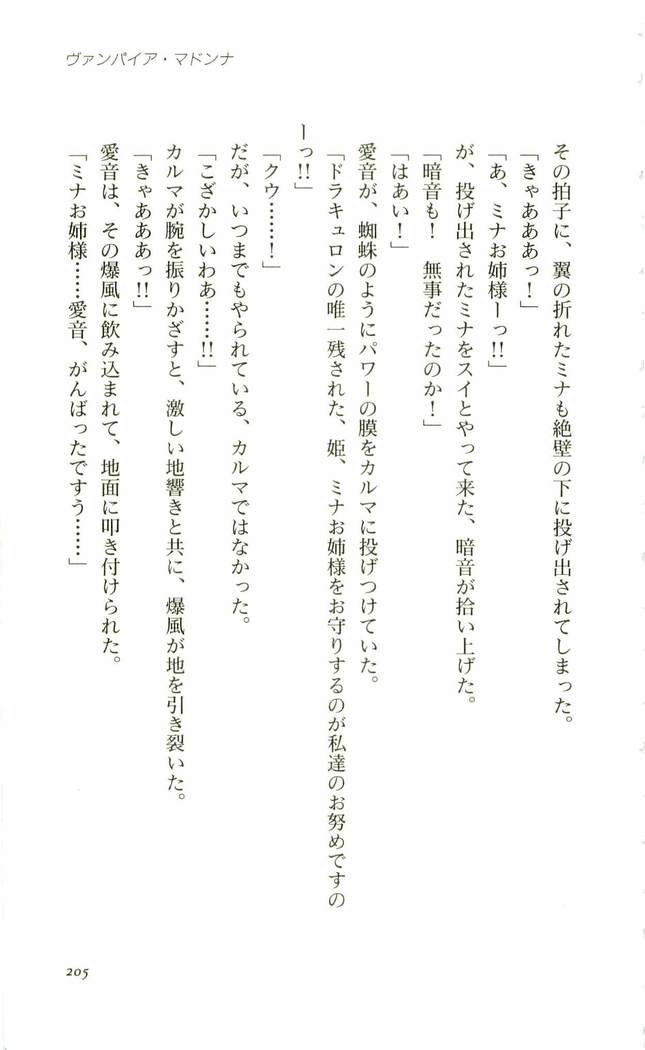 ヴァンパイア・マドンナ
その拍子に、翼の折れたミナも絶壁の下に投げ出されてしまった。
「きゃあああっ！」
「あ、ミナお姉様ーっ!!」
が、投げ出されたミナをスイとやって来た、暗音が拾い上げた。
「暗音も！　無事だったのか！」
「はあい！」
愛音が、蜘蛛のようにパワーの膜をカルマに投げつけていた。
「ドラキュロンの唯一残された、姫、ミナお姉様をお守りするのが私達のお努めですの
ーっ!!」
「クウ………！」
だが、いつまでもやられている、カルマではなかった。
「こざかしいわあ……!!」
カルマが腕を振りかざすと、激しい地響きと共に、爆風が地を引き裂いた。
「きゃあああっ!!」
愛音は、その爆風に飲み込まれて、地面に叩き付けられた。
「ミナお姉様……愛音、がんばったですう……」
205